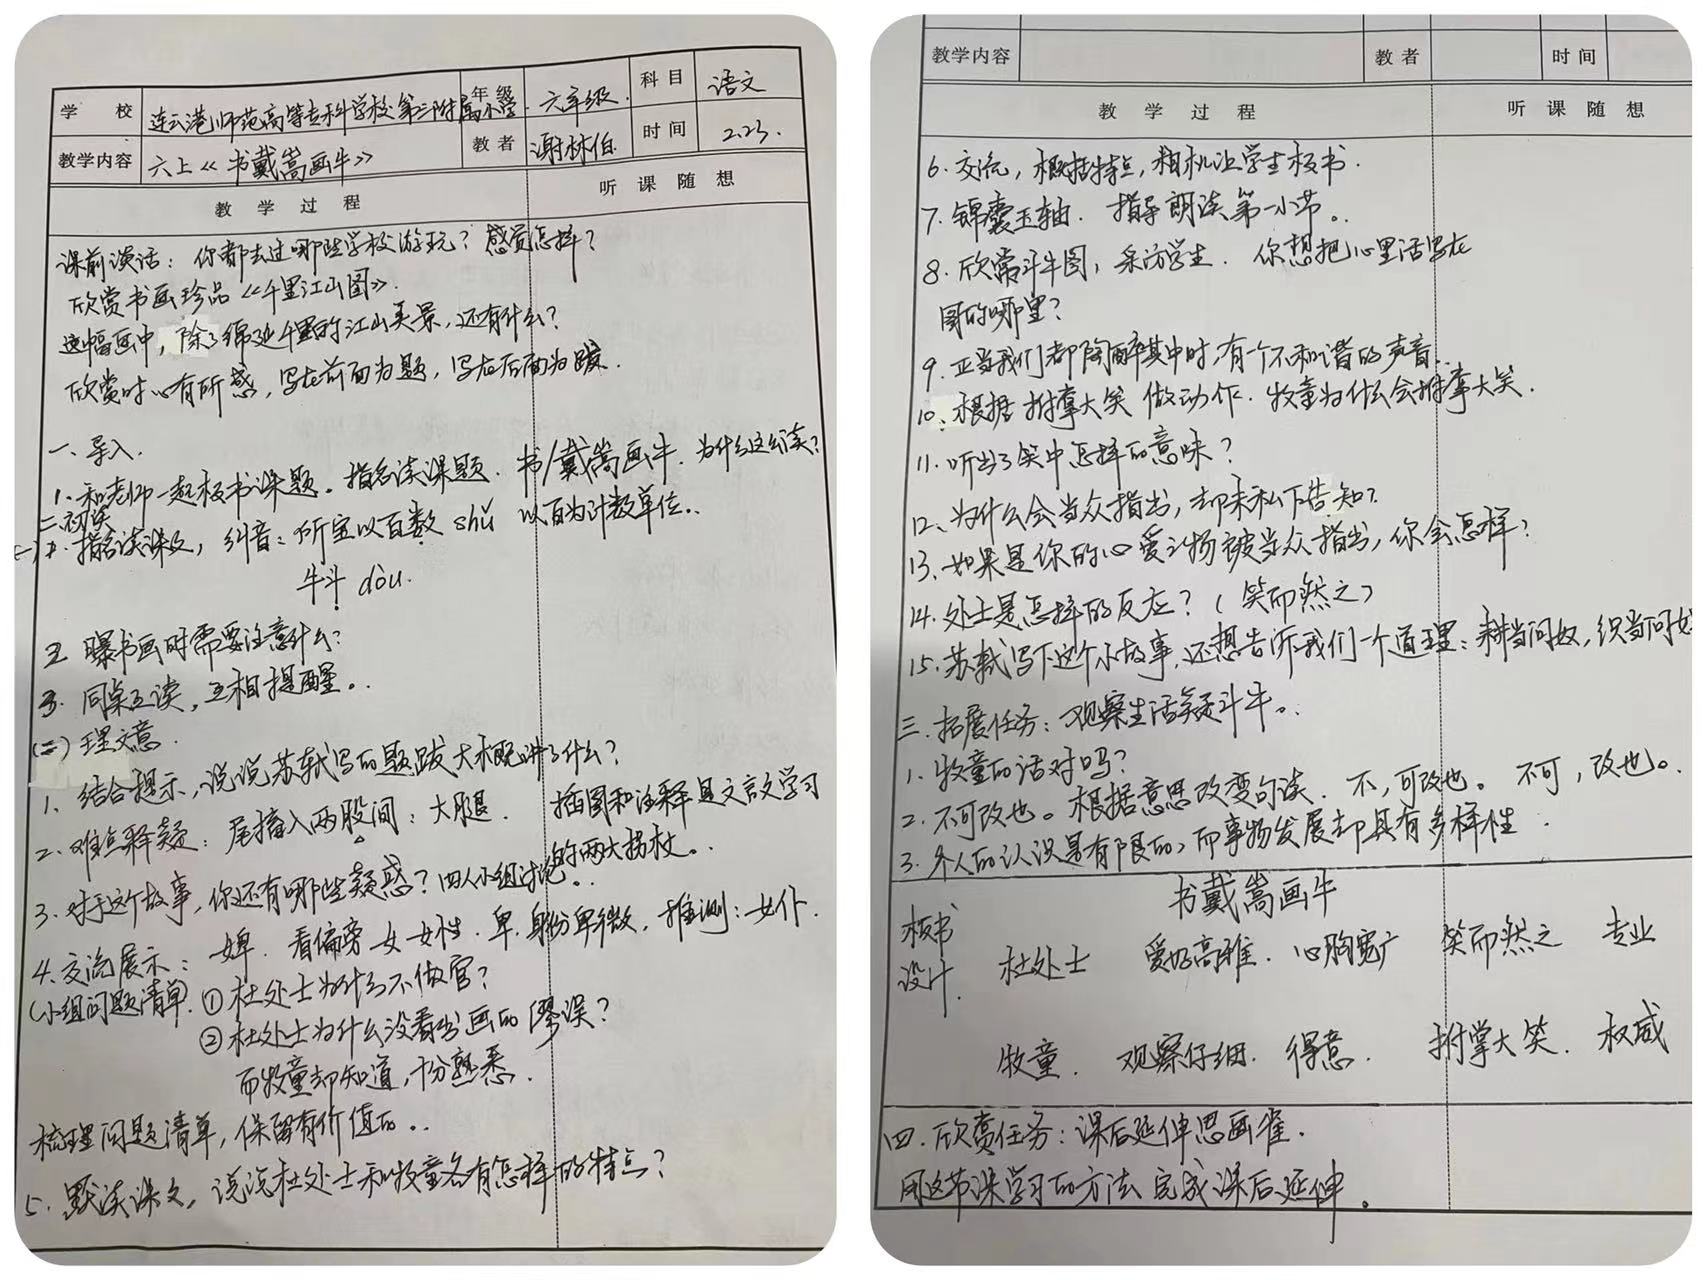 学 校 连云港师范高等专科学校第三附属小学 年级 六年级 科目 语文
教学内容 六上《书戴嵩画牛》 教者 谢林伯 时间 2.23.
教 学 过 程 听 课 随 想
课前谈话：你都去过哪些学校游玩？感觉怎样？
欣赏书画珍品《千里江山图》.
这幅画中，除了绵延千里的江山美景，还有什么？
欣赏时心有所感，写在前面为题，写在后面为跋.
一、导入.
1、和老师一起板书课题。指名读课题. 书/戴嵩画牛. 为什么这么读？
二、初读
(一) 1. 指名读课文，纠音：所宝以百数 shǔ 以百为计数单位..
牛斗 dòu.
2 曝书画时需要注意什么？
3. 同桌互读，互相提醒..
(二) 理文意.
1、结合提示，说说苏轼写的题跋大概讲了什么？
2、难点释疑：尾搐入两股间：大腿. 插图和注释是文言文学习的两大拐杖..
3、对于这个故事，你还有哪些疑惑？四人小组讨论..
4、交流展示：婢. 看偏旁 女 女性. 卑. 身份卑微. 推测：女仆.
(小组问题清单) ①杜处士为什么不做官？
②杜处士为什么没看出画的谬误？
而牧童却知道，十分熟悉.
梳理问题清单，保留有价值的..
5. 默读课文，说说杜处士和牧童各有怎样的特点？
教学内容 教者 时间
教 学 过 程 听 课 随 想
6. 交流，概括特点，相机让学生板书.
7. 锦囊玉轴. 指导朗读第一小节..
8. 欣赏斗牛图，采访学生. 你想把心里话写在
图的哪里？
9. 正当我们都陶醉其中时，有一个不和谐的声音..
10. 根据 拊掌大笑 做动作. 牧童为什么会拊掌大笑.
11. 听出了笑中怎样的意味？
12、为什么会当众指出，却未私下告知？
13、如果是你的心爱之物被当众指出，你会怎样？
14. 处士是怎样的反应？（笑而然之）
15. 苏轼写下这个小故事，还想告诉我们一个道理：耕当问奴，织当问婢
三、拓展任务：观察生活疑斗牛..
1、牧童的话对吗？
2. 不可改也。根据意思改变句读. 不，可改也。 不可，改也。
3. 个人的认识是有限的，而事物发展却具有多样性.
板书设计. 书戴嵩画牛
杜处士 爱好高雅. 心胸宽广 笑而然之 专业
牧童. 观察仔细. 得意. 拊掌大笑. 权威
四. 欣赏任务：课后延伸思画雀.
用这节课学习的方法 完成课后延伸.